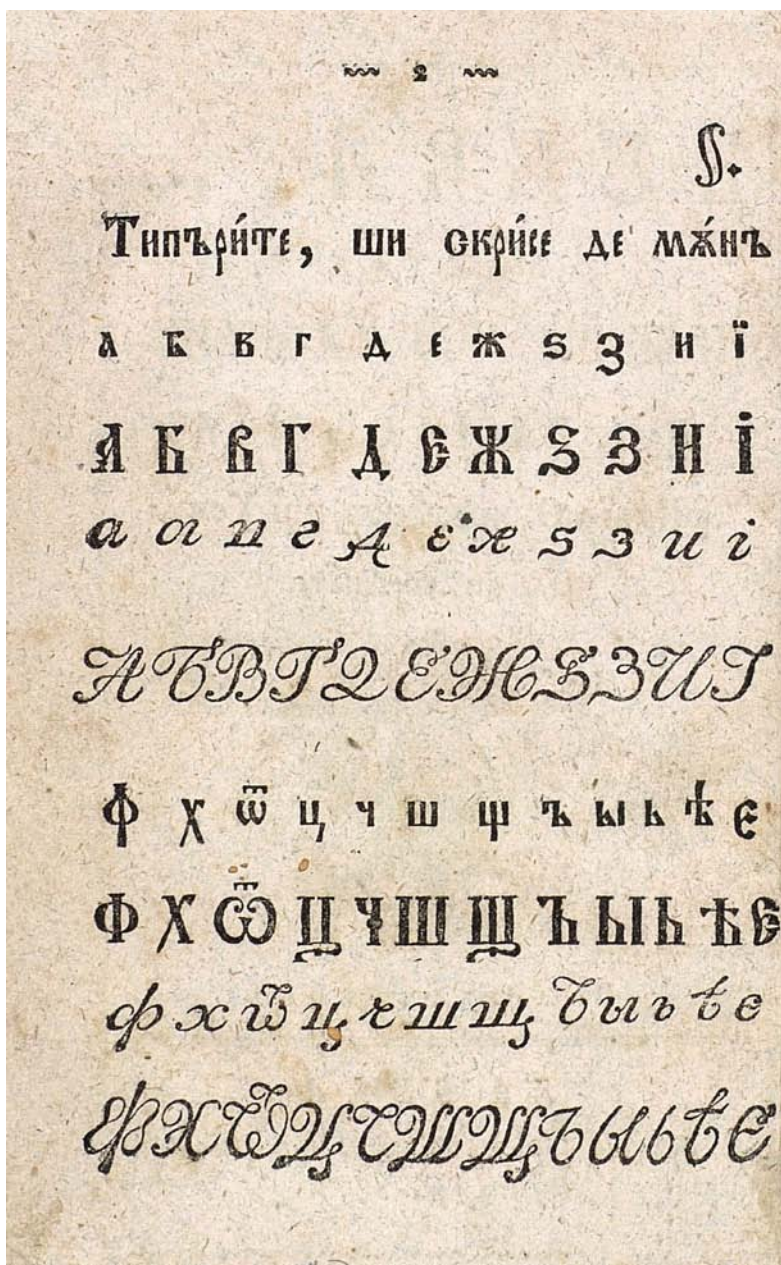 ~~~ 2 ~~~
§.
Типъри́те, ши скри́се де мѫ́нъ
а б в г д е ж ѕ з и ї
А Б В Г Д Є Ж Ѕ З И І
а б в г д е ж ѕ з и і
А Б В Г Д Е Ж Ѕ З И І
ф х ѿ ц ч ш щ ъ ы ь ѣ є
Ф Х Ѿ Ц Ч Ш Щ Ъ Ы Ь Ѣ Є
ф х ѿ ц ч ш щ ъ ы ь ѣ є
Ф Х Ѿ Ц Ч Ш Щ Ъ Ы Ь Ѣ Є